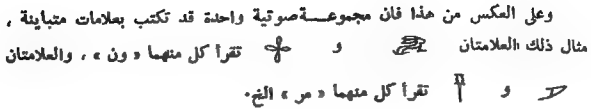 وعلى العكس من هذا فان مجموعـــة صوتية واحدة قد تكتب بعلامات متباينة ،
مثال ذلك العلامتان و تقرأ كل منهما « ون » ، والعلامتان
و تقرأ كل منهما « مر » الخ .